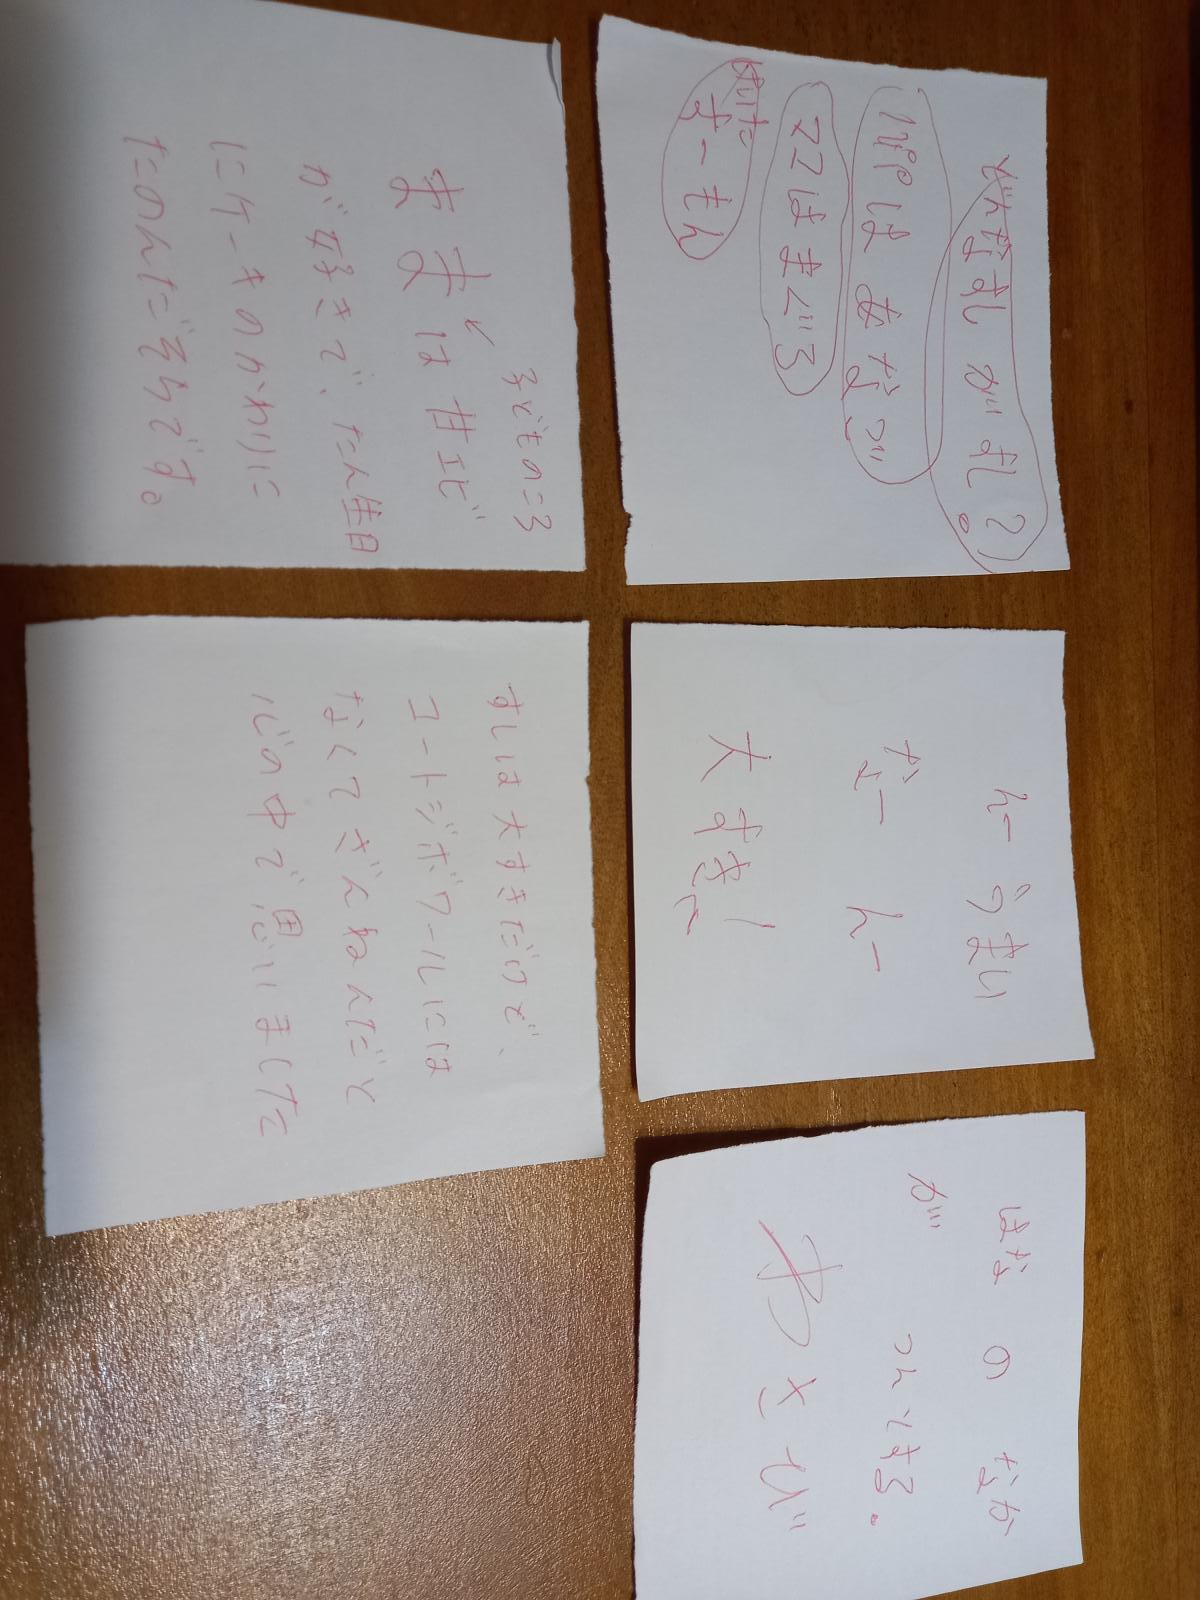 どんなすしがすし?
パパはあなご
ママはまぐろ
けいた
すーもん
んー うまい
なー んー
大すき!
はな の なか
が つんとする.
わさび
子どものころ
ままは甘エビ
が好きで、たん生日
にケーキのかわりに
たのんだそうです。
すしは大すきだけど、
コートジボワールには
なくてざんねんだと
心の中で思いました